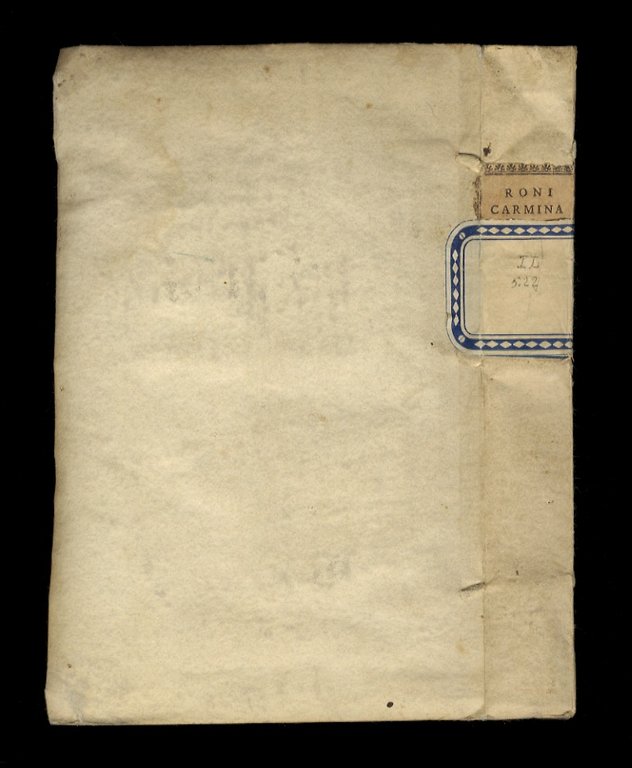 RONI
CARMINA
II
5.22